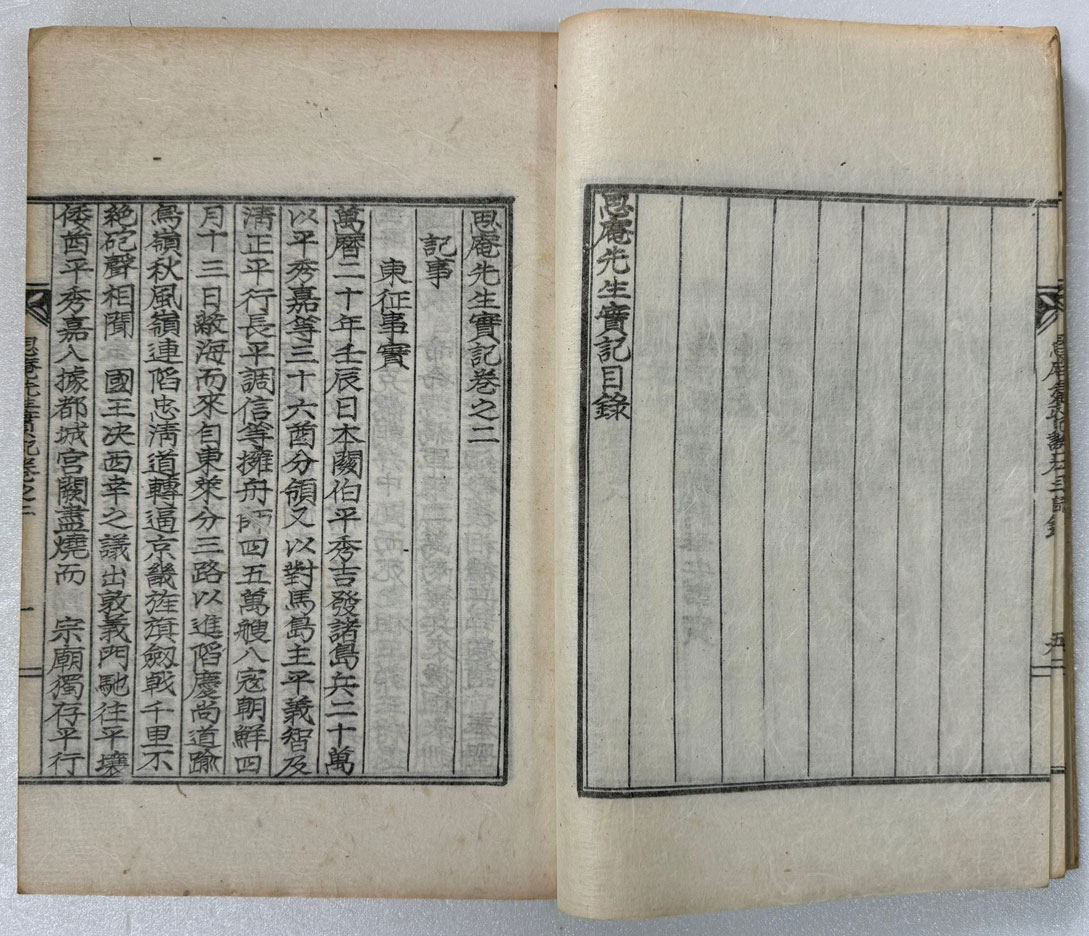 思庵先生實記目錄
思庵先生實記卷之二
記事
東征事實
萬曆二十年壬辰日本關伯平秀吉發諸島兵二十萬
以平秀嘉等三十六酋分領又以對馬島主平義智及
淸正平行長平調信等擁舟師四五萬艘入寇朝鮮四
月十三日蔽海而來自東萊分三路以進陷慶尙道踰
鳥嶺秋風嶺連陷忠淸道轉逼京畿旌旗劔戟千里不
絶砲聲相聞 國王決西幸之議出敦義門馳往平壤
倭酋平秀嘉入據都城宮闕盡燒而 宗廟獨存平行
思庵先生實記卷之二
一